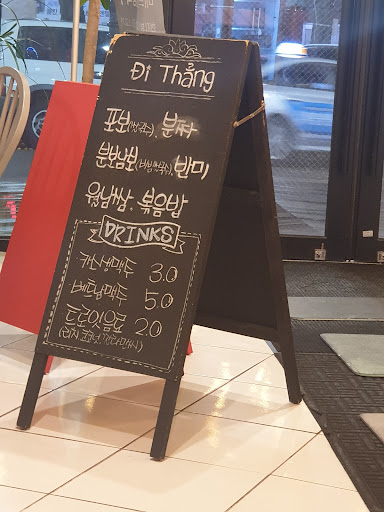 Đi Thẳng
포보(쌀국수), 분짜
분보남보(비빔쌀국수), 반미
월남쌈, 볶음밥
DRINKS
카스생맥주 3.0
베트남맥주 5.0
트로잇음료 2.0